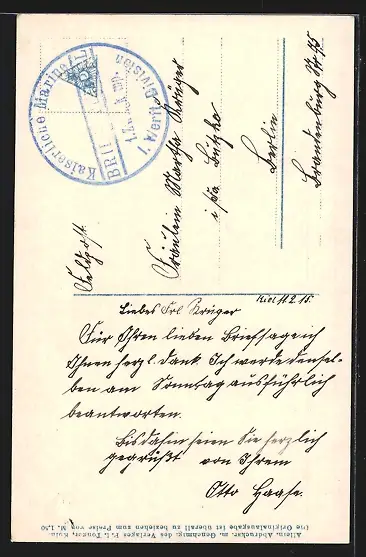 Kaiserliche Marine
I. Werftdivision
Feldpost
Fräulein Martha Krüger
Berlin
Brandenburg Str 75
Kiel 11.2.15.
Liebes Frl Krüger
Für Ihren lieben Brief sage ich
Ihnen herzl. Dank Ich werde densel-
ben am Sonntag ausführlich
beantworten.
Bis dahin seien Sie herzlich
gegrüßt von Ihrem
Otto Haase.
Allein. Abdruckkar. m. Genehmig. des Verlages F. I. Tonger, Köln.
(Die Originalausgabe ist überall zu beziehen zum Preise von M. 1,50